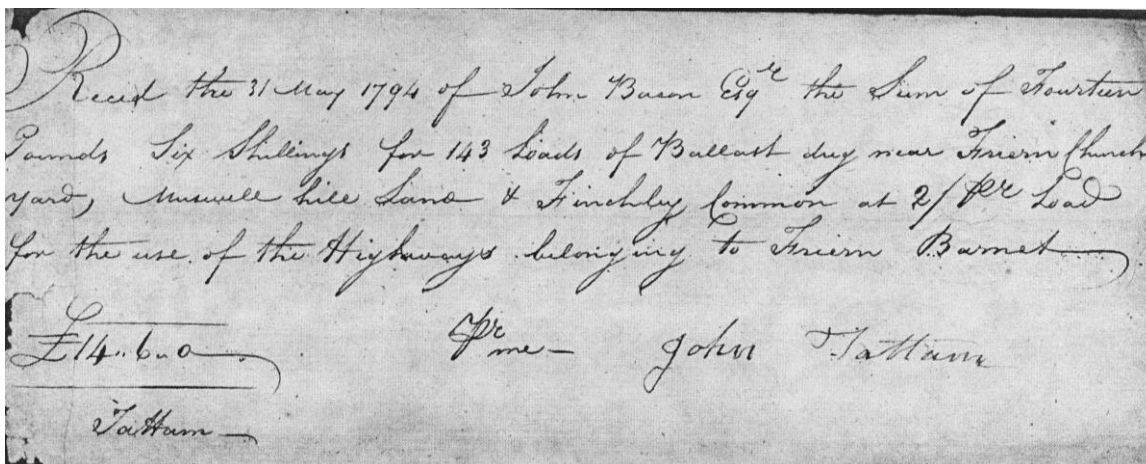 Recd the 31 May 1794 of John Bacon Esqr the Sum of Fourteen
Pounds Six Shillings for 143 Loads of Ballast dug near Friern Church
yard, Muswell hill Land & Finchley Common at 2/ pr Load
for the use of the Highways belonging to Friern Barnet
£14..6..0 pr me John Tattam
Tattam